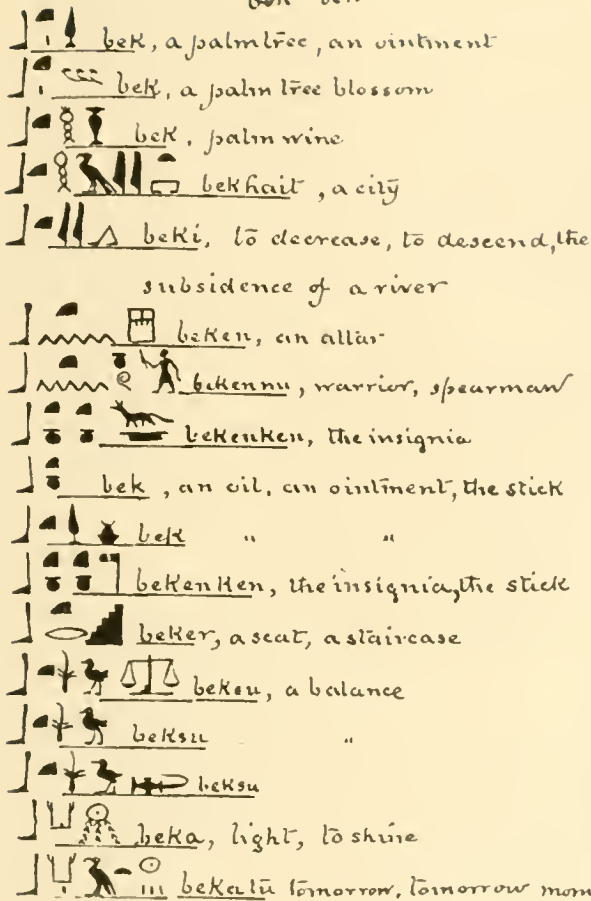 bek, a palm tree, an ointment
bek, a palm tree blossom
bek, palm wine
bekhait, a city
beki, to decrease, to descend, the
subsidence of a river
beken, an altar
bekennu, warrior, spearman
bekenken, the insignia
bek, an oil, an ointment, the stick
bek " "
bekenken, the insignia, the stick
beker, a seat, a staircase
bekeu, a balance
beksu "
beksu
beka, light, to shine
bekatu tomorrow, tomorrow morn